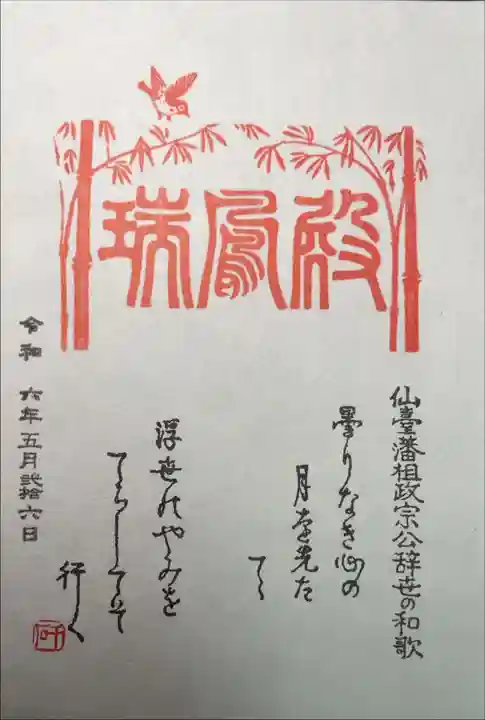 瑞鳳殿
仙臺藩祖政宗公辞世の和歌
曇りなき心の
月を先た
てゝ
浮世のやみを
てらしてそ
行く
令和 六年五月弐拾六日